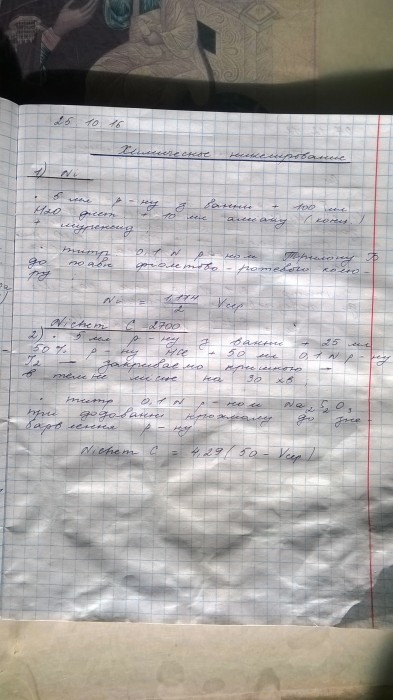 25 10 16
Химическое никелирование
1) Ni
• 5 мл р-ну з ванни + 100 мл
H2O дист + 10 мл аміаку (конц)
+ мурексид
• титр 0,1 N р-ном Трилону Б
до появи фіолетово-рожевого кольо-
ру
Ni = 1,174/2 Vср
Nichem C 2700
2) • 5 мл р-ну з ванни + 25 мл
50% р-ну HCl + 50 мл 0,1 N р-ну
I2 → закриваємо кришкою →
в темне місце на 30 хв
• титр 0,1 N р-ном Na2S2O3
при додаванні крохмалу до зне-
барвлення р-ну
Nichem C = 4,29(50 - Vср)